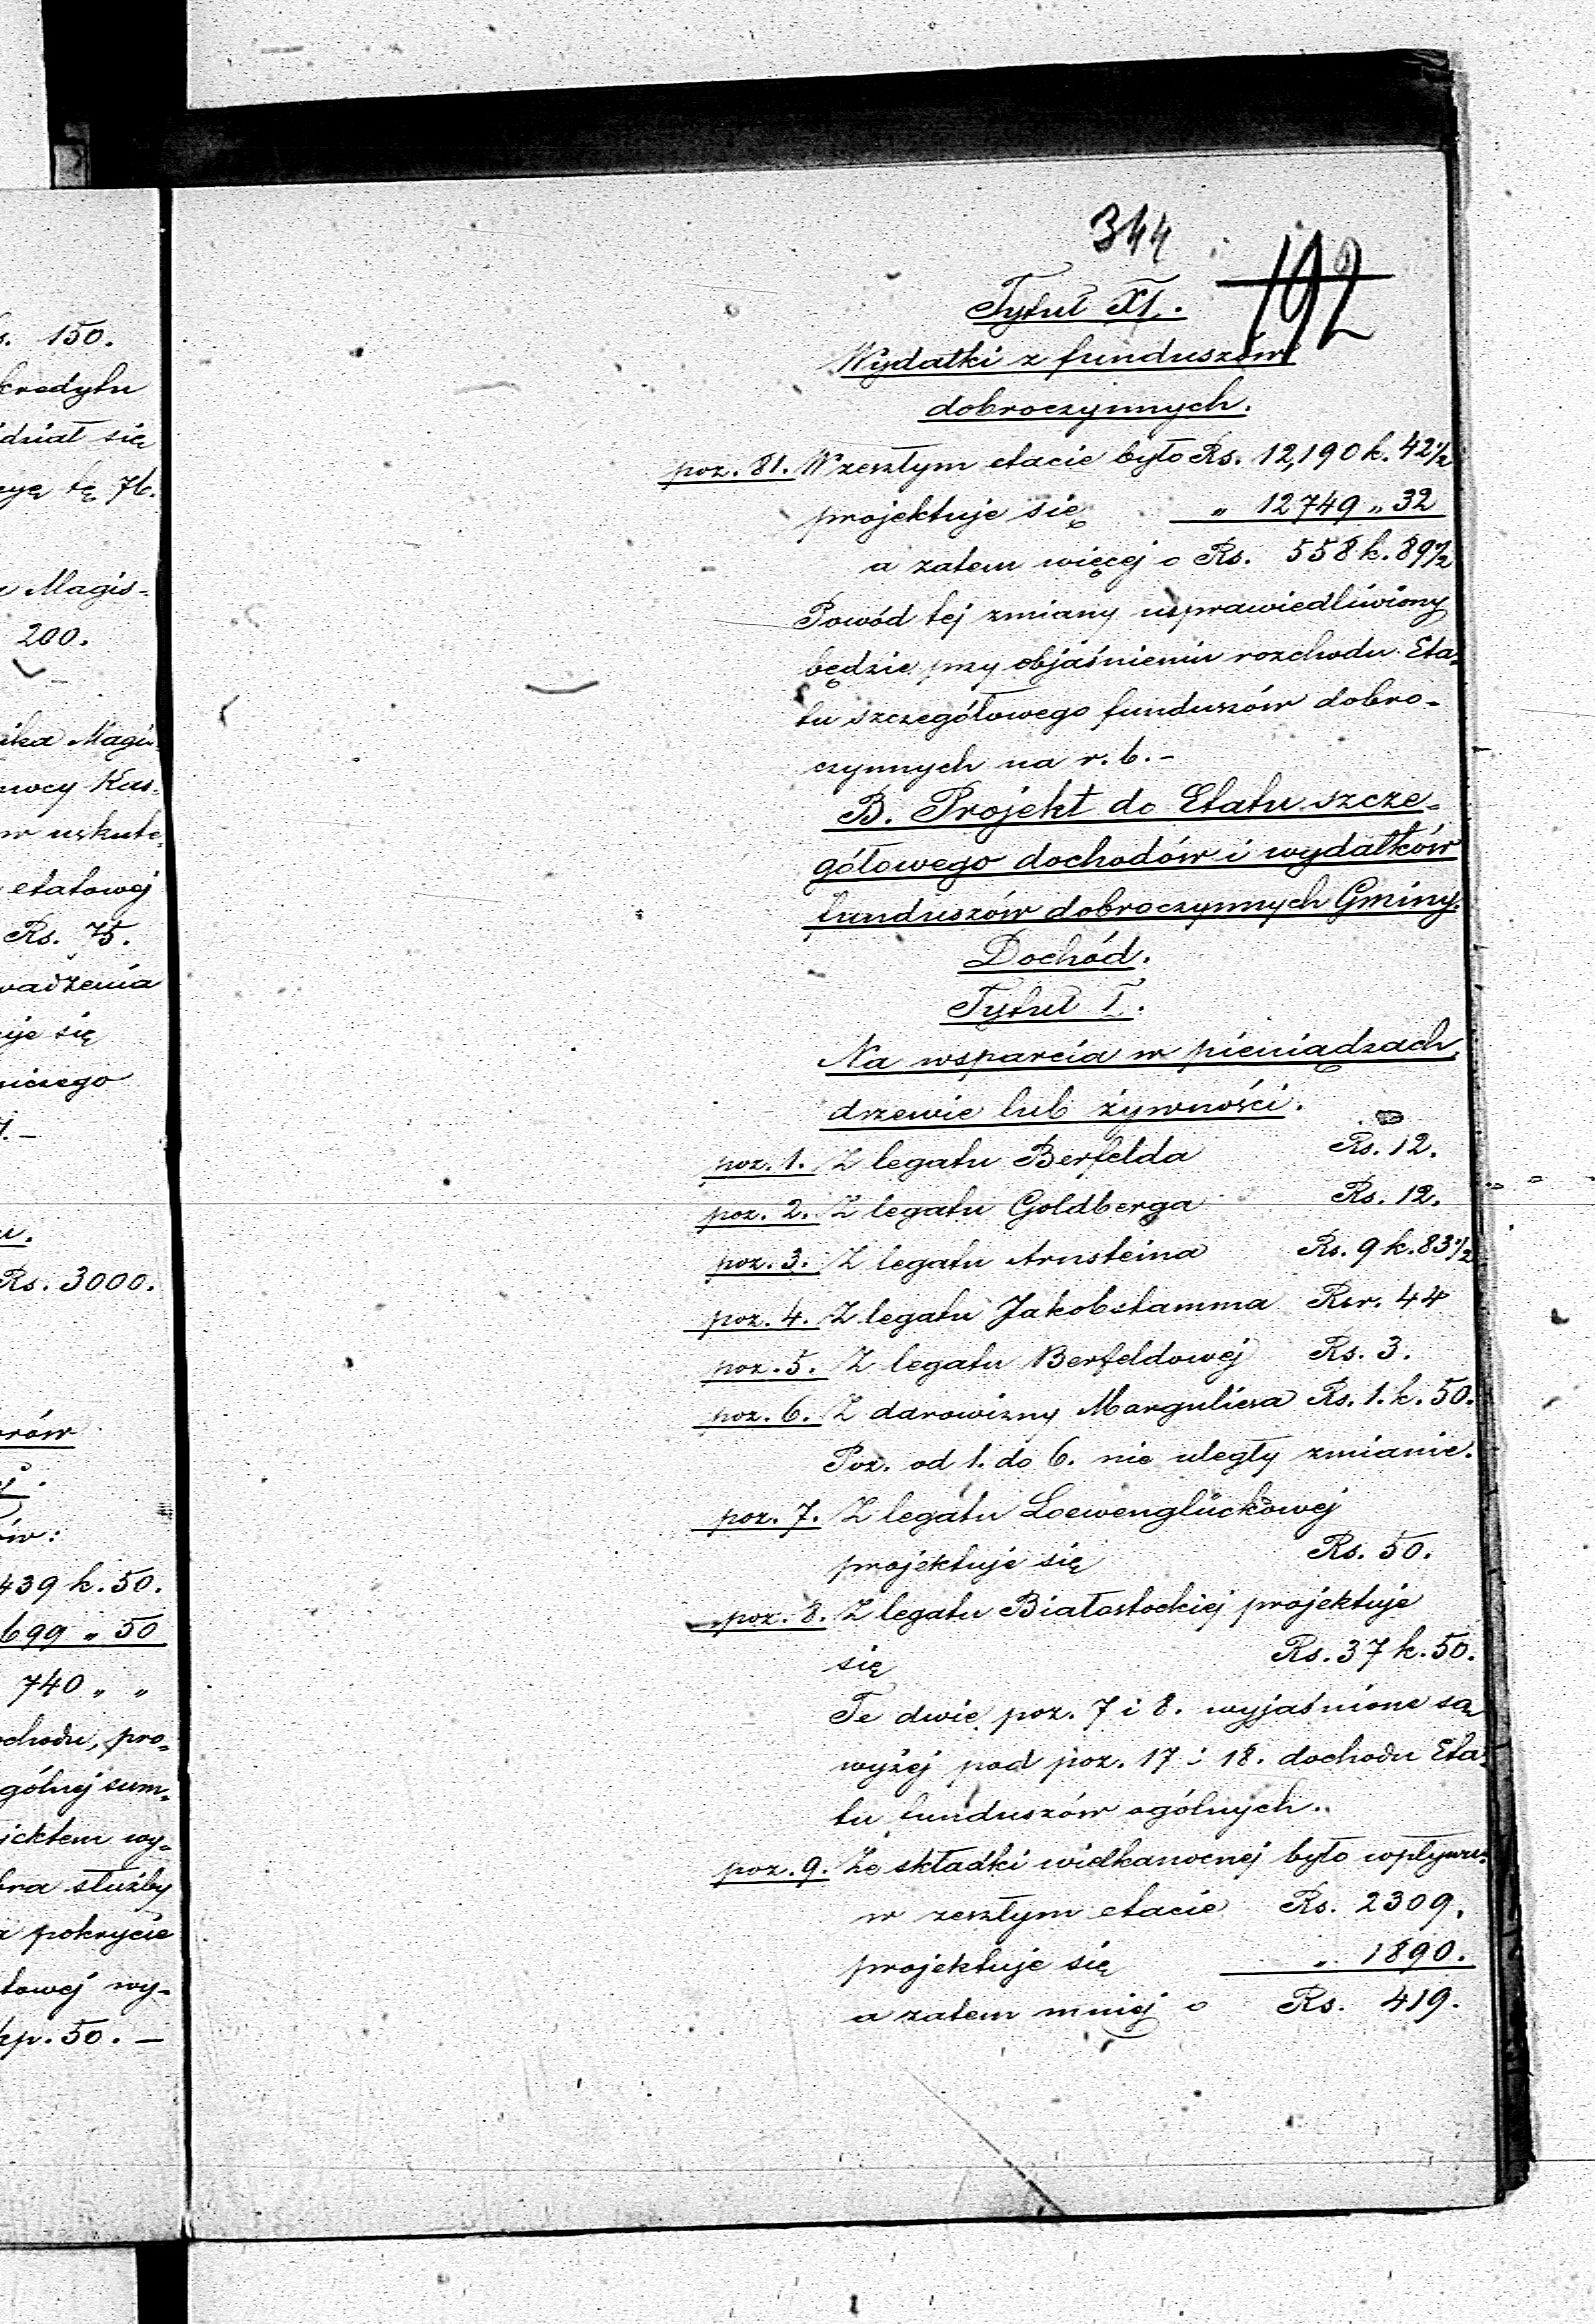 s. 150.
kredytu
dział się
cyę tę 76.
Magis-
200.
ika Magis-
mocy Kas-
w uskute-
etatowej
Rs. 75.
wadzenia
uje się
niczego
Rs. 3000.
orów
ów:
439 k. 50.
699 " 50
740 " "
ochodu, pro-
gólnej sum-
jektem wy-
bra służby
a pokrycie
towej wy-
kp. 50. —
344
192
Tytuł XI.
Wydatki z funduszów
dobroczynnych.
poz. 81. W zeszłym etacie było Rs. 12,190 k. 42 1/2
projektuje się " 12749 " 32
a zatem więcej o Rs. 558 k. 89 1/2
Powód tej zmiany usprawiedliwiony
będzie przy objaśnieniu rozchodu Eta-
tu szczegółowego funduszów dobro-
czynnych na r. b. -
B. Projekt do Etatu szcze-
gółowego dochodów i wydatków
funduszów dobroczynnych Gminy.
Dochód.
Tytuł I.
Na wsparcia w pieniądzach,
drzewie lub żywności.
poz. 1. Z legatu Berfelda Rs. 12.
poz. 2. Z legatu Goldberga Rs. 12.
poz. 3. Z legatu Arnsteina Rs. 9 k. 83 1/2
poz. 4. Z legatu Jakobstamma Rsr. 44
poz. 5. Z legatu Berfeldowej Rs. 3.
poz. 6. Z darowizny Marguliesa Rs. 1. k. 50.
Poz. od 1. do 6. nie uległy zmianie.
poz. 7. Z legatu Loewenglückowej
projektuje się Rs. 50.
poz. 8. Z legatu Białostockiej projektuje
się Rs. 37 k. 50.
Te dwie poz. 7 i 8. wyjaśnione są
wyżej pod poz. 17 i 18. dochodu Eta-
tu funduszów ogólnych.
poz. 9. Ze składki wielkanocnej było wpływu
w zeszłym etacie Rs. 2309.
projektuje się " 1890.
a zatem mniej o Rs. 419.